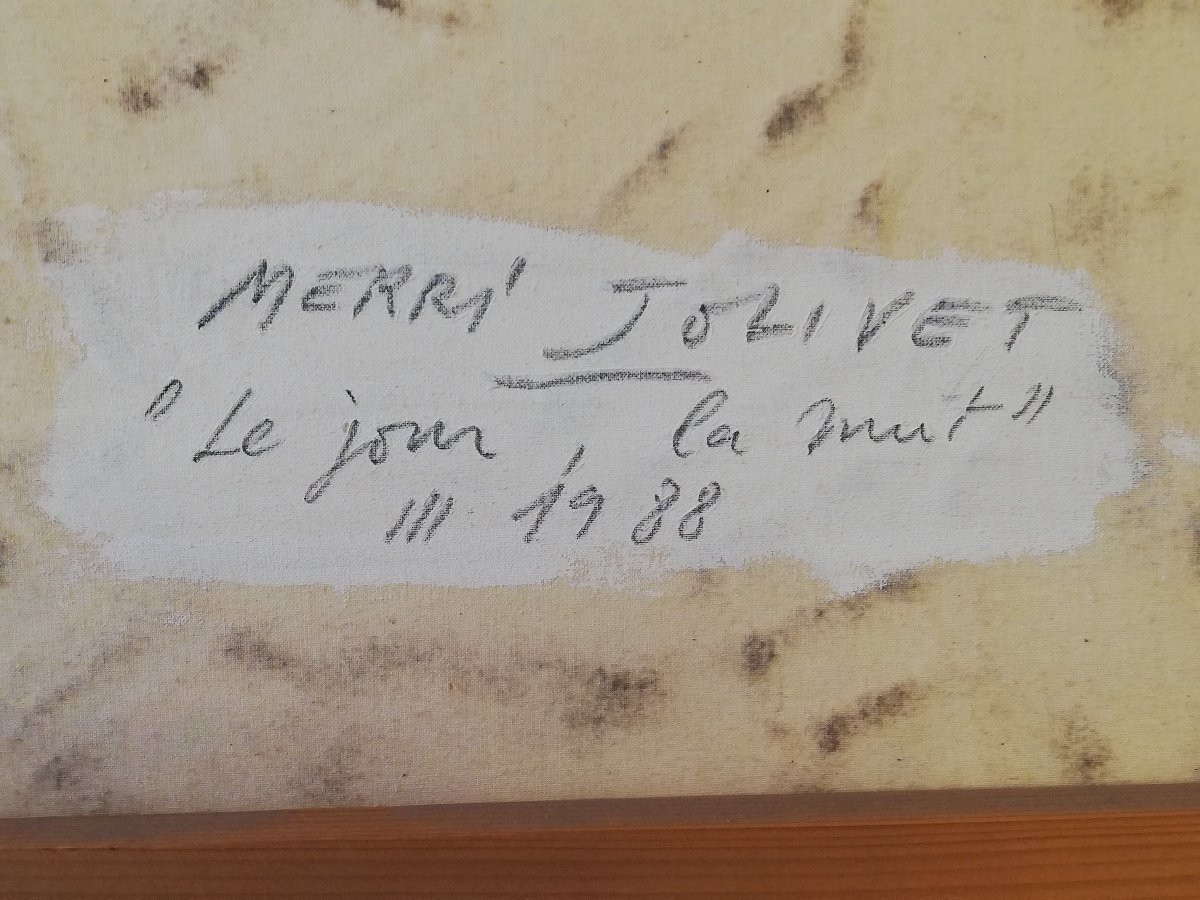 MERRI JOLIVET
"Le jour, la nuit"
III 1988